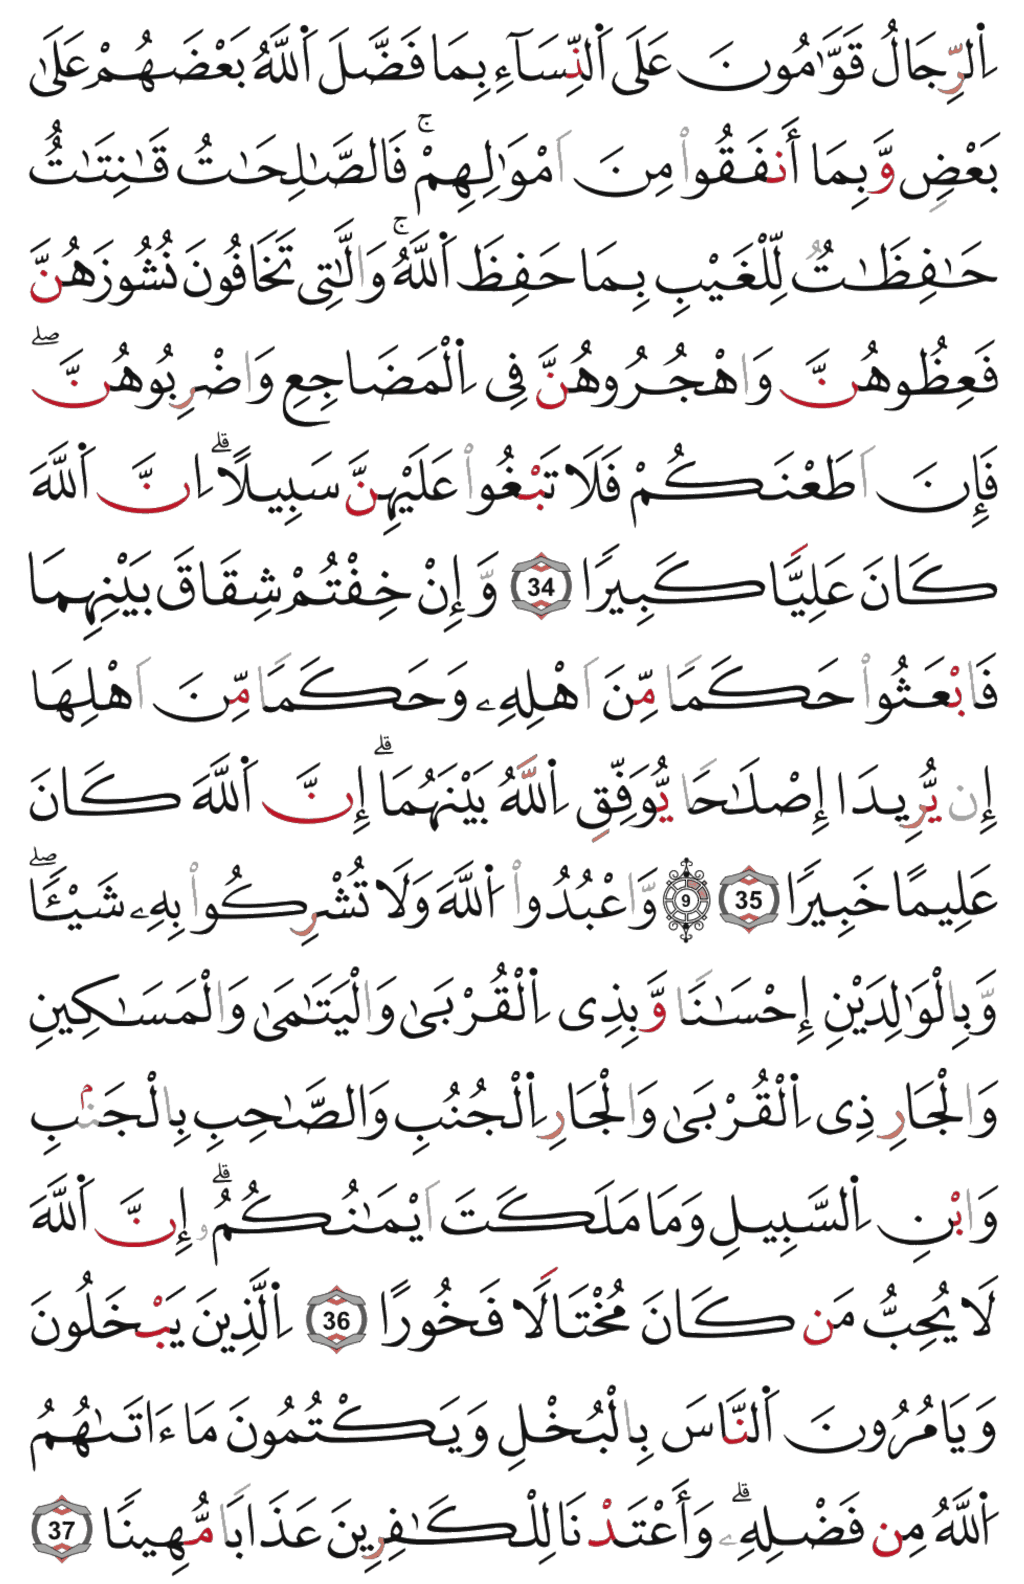 اِ۬لرِّجَالُ قَوَّٰمُونَ عَلَى اَ۬لنِّسَآءِ بِمَا فَضَّلَ اَ۬للَّهُ بَعْضَهُمْ عَلَىٰ
بَعْضٖ وَّبِمَا أَنفَقُواْ مِنَ اَمْوَٰلِهِمْۚ فَالصَّٰلِحَٰتُ قَٰنِتَٰتٌ
حَٰفِظَٰتٞ لِّلْغَيْبِ بِمَا حَفِظَ اَ۬للَّهُۚ وَالَّٰتِى تَخَافُونَ نُشُوزَهُنَّ
فَعِظُوهُنَّ وَاهْجُرُوهُنَّ فِى اِ۬لْمَضَاجِعِ وَاضْرِبُوهُنَّۖ
فَإِنَ اَطَعْنَكُمْ فَلَا تَبْغُواْ عَلَيْهِنَّ سَبِيلًاۗ اِنَّ اَ۬للَّهَ
كَانَ عَلِيّٗا كَبِيرًا 34 وَّإِنْ خِفْتُمْ شِقَاقَ بَيْنِهِمَا
فَابْعَثُواْ حَكَمٗا مِّنَ اَهْلِهِۦ وَحَكَمٗا مِّنَ اَهْلِهَا
إِن يُّرِيدَا إِصْلَٰحٗا يُّوَفِّقِ اِ۬للَّهُ بَيْنَهُمَاۗ إِنَّ اَ۬للَّهَ كَانَ
عَلِيمًا خَبِيرًا 35 9 وَّاعْبُدُواْ اُ۬للَّهَ وَلَا تُشْرِكُواْ بِهِۦ شَيْـٔٗاۖ
وَّبِالْوَٰلِدَيْنِ إِحْسَٰنٗا وَّبِذِى اِ۬لْقُرْبَىٰ وَالْيَتَٰمَىٰ وَالْمَسَٰكِينِ
وَالْجَارِ ذِى اِ۬لْقُرْبَىٰ وَالْجَارِ اِ۬لْجُنُبِ وَالصَّٰحِبِ بِالْجَنۢبِ
وَابْنِ اِ۬لسَّبِيلِ وَمَا مَلَكَتَ اَيْمَٰنُكُمُۥۗ إِنَّ اَ۬للَّهَ
لَا يُحِبُّ مَن كَانَ مُخْتَالٗا فَخُورًا 36 اِ۬لَّذِينَ يَبْخَلُونَ
وَيَامُرُونَ اَ۬لنَّاسَ بِالْبُخْلِ وَيَكْتُمُونَ مَا ءَاتَىٰهُمُ
اُ۬للَّهُ مِن فَضْلِهِۦۗ وَأَعْتَدْنَا لِلْكَٰفِرِينَ عَذَابٗا مُّهِينًا 37